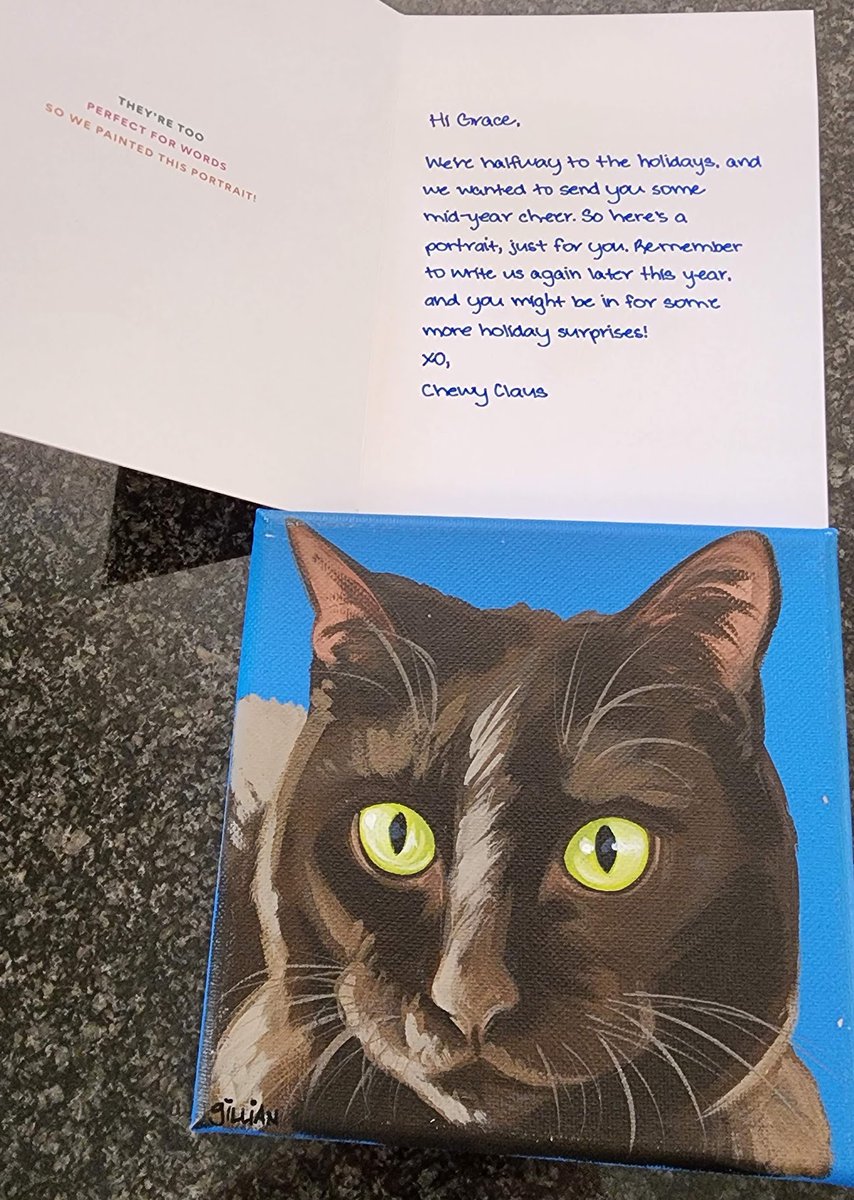 THEY'RE TOO
PERFECT FOR WORDS
SO WE PAINTED THIS PORTRAIT!
Hi Grace,
We're halfway to the holidays, and
we wanted to send you some
mid-year cheer. So here's a
portrait, just for you. Remember
to write us again later this year,
and you might be in for some
more holiday surprises!
XO,
Chewy Claus
gillian